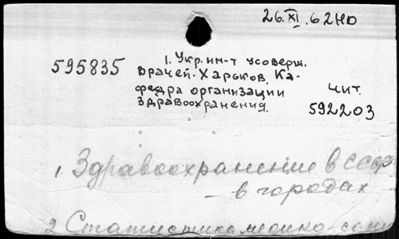 26.XI.62 НО
595835
1. Укр. ин-т усоверш.
врачей. Харьков. Ка-
федра организации
здравоохранения.
чит.
592203
1. Здравоохранение в СССР
- в городах
2. Статистика медико-сани